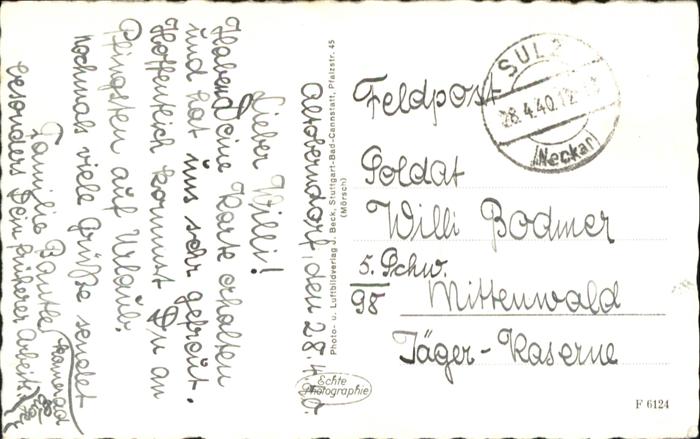 Altoberndorf, den 28.4.40.
Lieber Willi!
Haben Deine Karte erhalten
und hat uns sehr gefreut.
Hoffentlich kommst Du an
Pfingsten auf Urlaub.
nochmals viele Grüße sendet
Familie Bantle
besonders Dein früherer Arbeits
kamerad
Photo- u. Luftbildverlag J. Beck, Stuttgart-Bad-Cannstatt, Pfalzstr. 45
(Mörsch)
Echte
Photographie
SULZ
28.4.40.12
(Neckar)
Feldpost
Soldat
Willi Bodmer
5. Schw.
98 Mittenwald
Jäger-Kaserne
F 6124